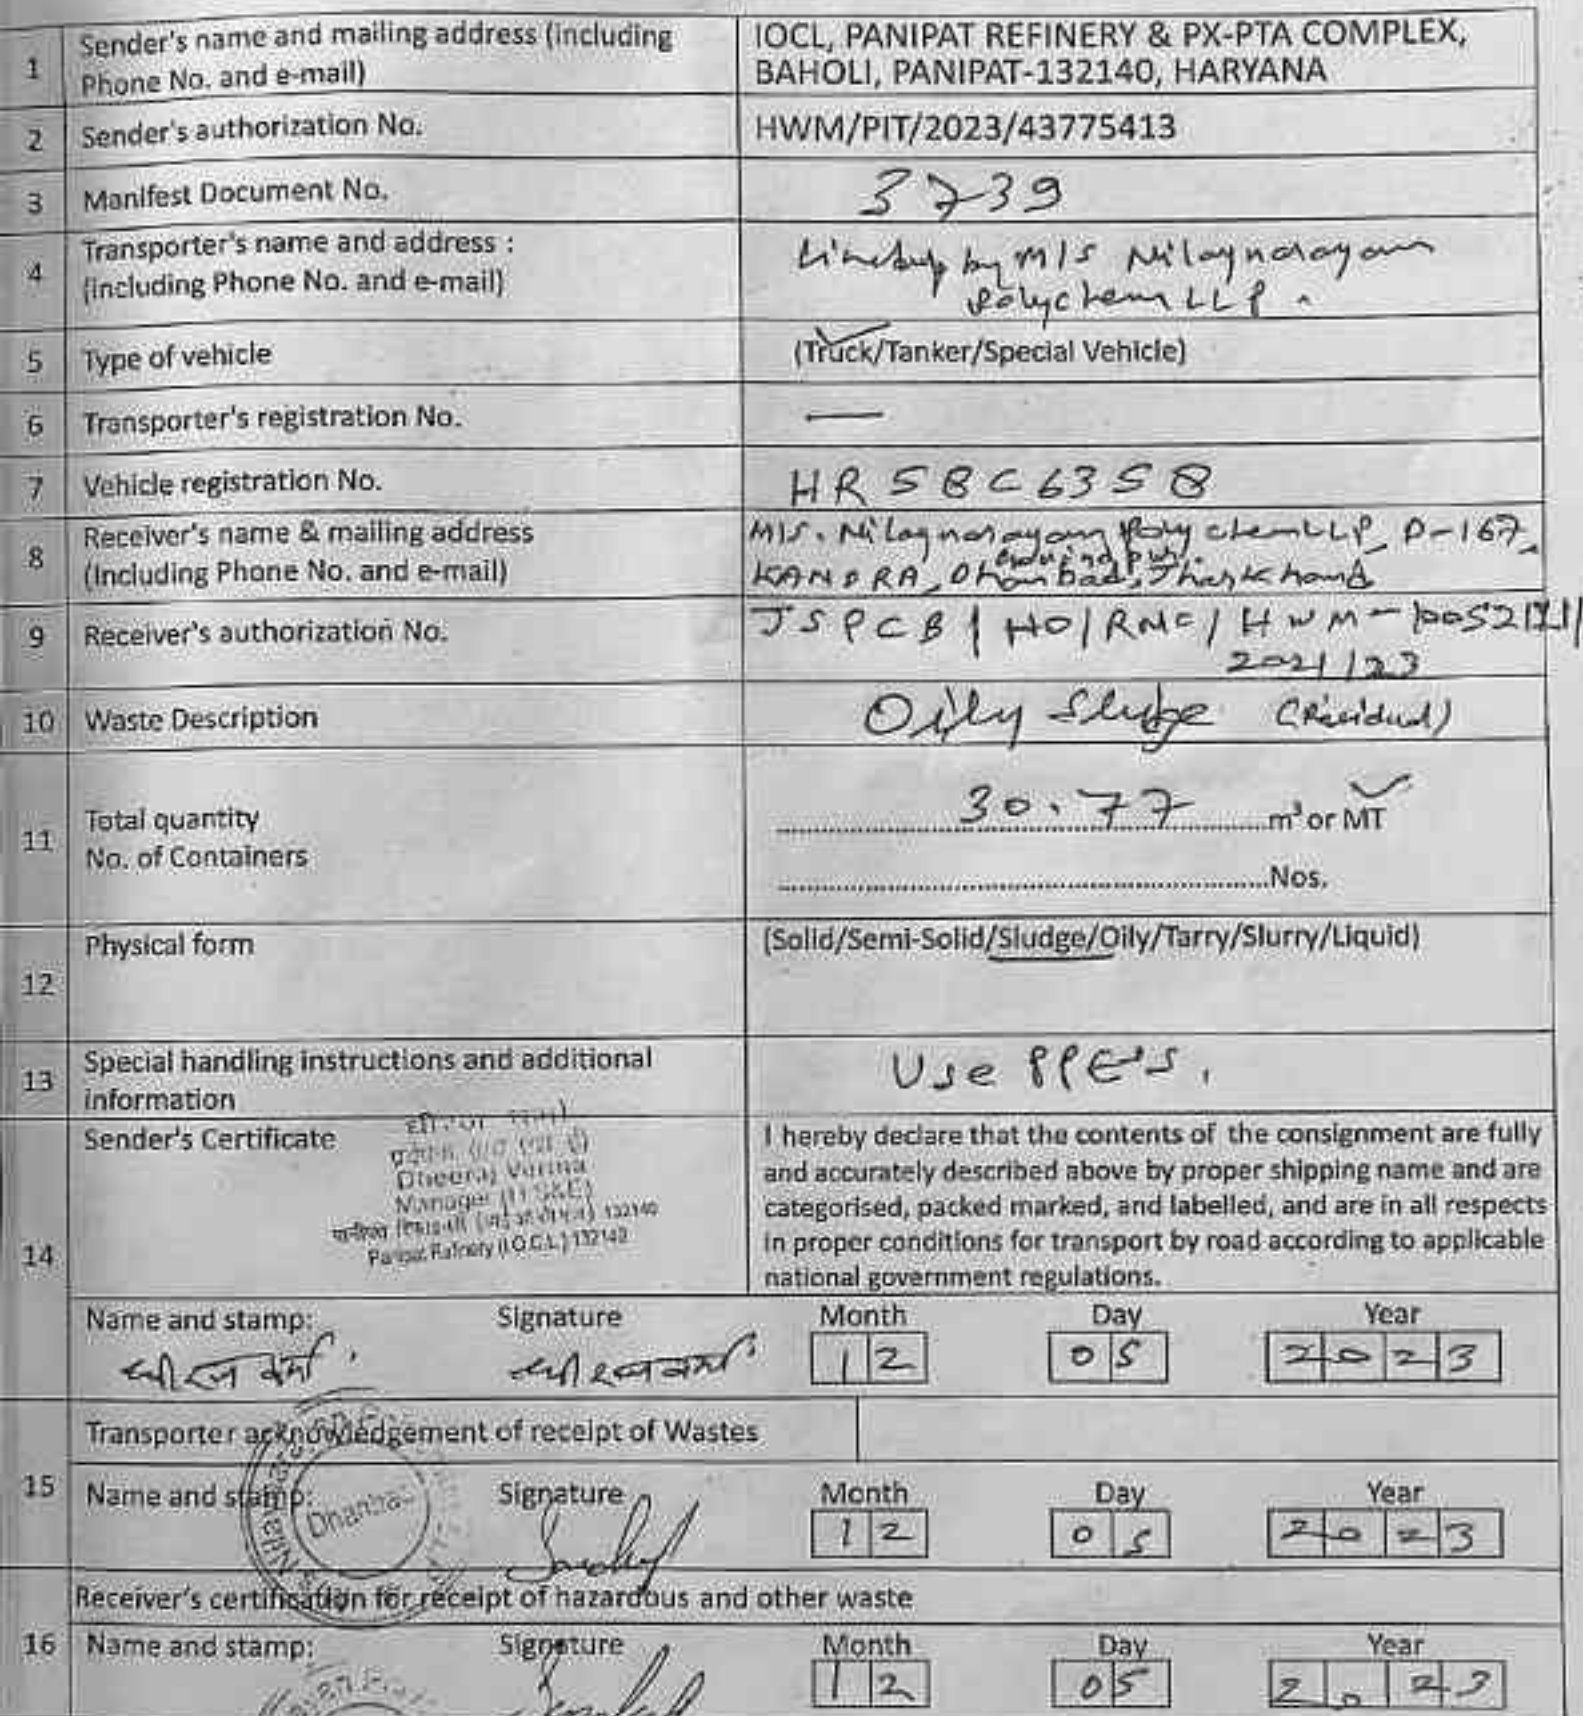 1 Sender's name and mailing address (including Phone No. and e-mail)
IOCL, PANIPAT REFINERY & PX-PTA COMPLEX,
BAHOLI, PANIPAT-132140, HARYANA
2 Sender's authorization No. HWM/PIT/2023/43775413
3 Manifest Document No. 3739
4 Transporter's name and address :
(including Phone No. and e-mail)
by M/S Nilaynarayan
Polychem LLP.
5 Type of vehicle (Truck/Tanker/Special Vehicle)
6 Transporter's registration No. —
7 Vehicle registration No. HR58C6358
8 Receiver's name & mailing address
(Including Phone No. and e-mail)
M/S. Nilaynarayan Polychem LLP, D-167,
Govindpur
KANDRA, Dhanbad, Jharkhand
9 Receiver's authorization No. JSPCB/HO/RNC/HWM-
2021/23
10 Waste Description Oily Sludge (Residual)
11 Total quantity 30.77 m³ or MT
No. of Containers Nos.
12 Physical form (Solid/Semi-Solid/Sludge/Oily/Tarry/Slurry/Liquid)
13 Special handling instructions and additional
information
Use PPE'S.
14 Sender's Certificate
Dheeraj Verma
Manager (HS&E)
Panipat Refinery (I.O.C.L.) 132140
I hereby declare that the contents of the consignment are fully
and accurately described above by proper shipping name and are
categorised, packed marked, and labelled, and are in all respects
in proper conditions for transport by road according to applicable
national government regulations.
Name and stamp: Signature Month Day Year
धीरज वर्मा धीरज वर्मा 12 05 2023
15 Transporter acknowledgement of receipt of Wastes
Name and stamp: Signature Month Day Year
Dhanba 12 05 2023
Receiver's certification for receipt of hazardous and other waste
16 Name and stamp: Signature Month Day Year
12 05 2023